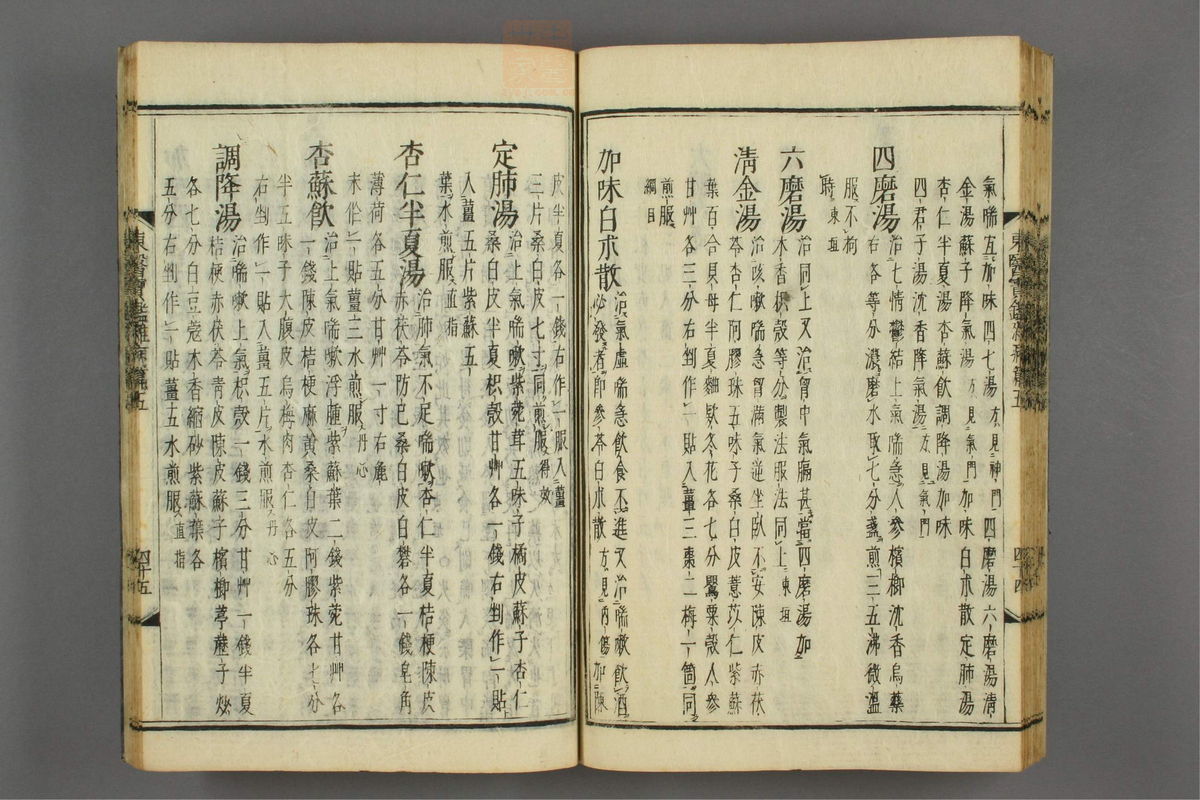 氣喘宜加味四七湯方見神門四磨湯六磨湯淸
金湯蘇子降氣湯方見氣門加味白朮散定肺湯
杏仁半夏湯杏蘇飮調降湯加味
四君子湯沈香降氣湯方見氣門
四磨湯治七情鬱結上氣喘急人參檳榔沈香烏藥
右各等分濃磨水取七分盞煎三五沸微溫
服不拘
時東垣
六磨湯治同上又治胷中氣痞甚當四磨湯加
木香枳殼等分製法服法同上東垣
淸金湯治咳嗽喘急胷滿氣逆坐臥不安陳皮赤茯
苓杏仁阿膠珠五味子桑白皮薏苡仁紫蘇
葉百合貝母半夏麯款冬花各七分罌粟殼人參
甘艸各三分右剉作一貼入薑三棗二梅一箇同
煎服
綱目
加味白朮散治氣虛喘急飮食不進又治喘嗽飮酒
必發者卽參苓白朮散方見內傷加陳
皮半夏各一錢右作一服入薑
三片桑白皮七寸同煎服得效
定肺湯治上氣喘嗽紫菀茸五味子橘皮蘇子杏仁
桑白皮半夏枳殼甘艸各一錢右剉作一貼
入薑五片紫蘇五
葉水煎服直指
杏仁半夏湯治肺氣不足喘嗽杏仁半夏桔梗陳皮
赤茯苓防己桑白皮白礬各一錢皂角
薄荷各五分甘艸一寸右麄
末作二貼薑三水煎服丹心
杏蘇飮治上氣喘嗽浮腫紫蘇葉二錢紫菀甘艸各
一錢陳皮桔梗麻黃桑白皮阿膠珠各七分
半五味子大腹皮烏梅肉杏仁各五分
右剉作一貼入薑五片水煎服丹心
調降湯治喘嗽上氣枳殼一錢三分甘艸一錢半夏
桔梗赤茯苓靑皮陳皮蘇子檳榔葶藶子炒
各七分白豆蔻木香縮砂紫蘇葉各
五分右剉作一貼薑五水煎服直指
東醫寶鑑雜病篇五
四十四
東醫寶鑑雜病篇五
四十五